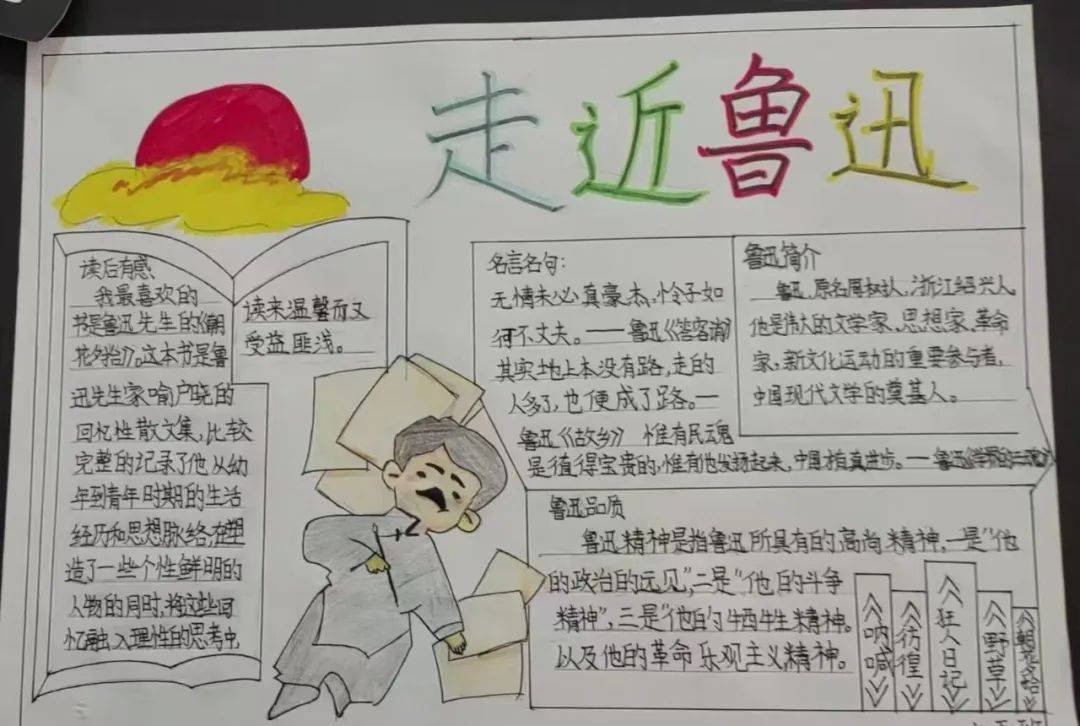 走近鲁迅
读后有感
我最喜欢的
书是鲁迅先生的《朝
花夕拾》。这本书是鲁
迅先生家喻户晓的
回忆性散文集,比较
完整的记录了他从幼
年到青年时期的生活
经历和思想脉络,在塑
造了一些个性鲜明的
人物的同时,将这些回
忆融入理性的思考中,
读来温馨而又
受益匪浅。
名言名句:
无情未必真豪杰,怜子如
何不丈夫。——鲁迅《答客诮》
其实地上本没有路,走的
人多了,也便成了路。—
鲁迅《故乡》 惟有民魂
是值得宝贵的,惟有他发扬起来,中国才有真进步。——鲁迅《学界的三魂》
鲁迅简介
鲁迅,原名周树人,浙江绍兴人
他是伟大的文学家,思想家,革命
家,新文化运动的重要参与者,
中国现代文学的奠基人。
鲁迅品质
鲁迅精神是指鲁迅所具有的高尚精神,一是“他
的政治的远见”,二是“他的斗争
精神”,三是“他的牺牲精神。
以及他的革命乐观主义精神。
《呐喊》
《彷徨》
《狂人日记》
《野草》
《朝花夕拾》